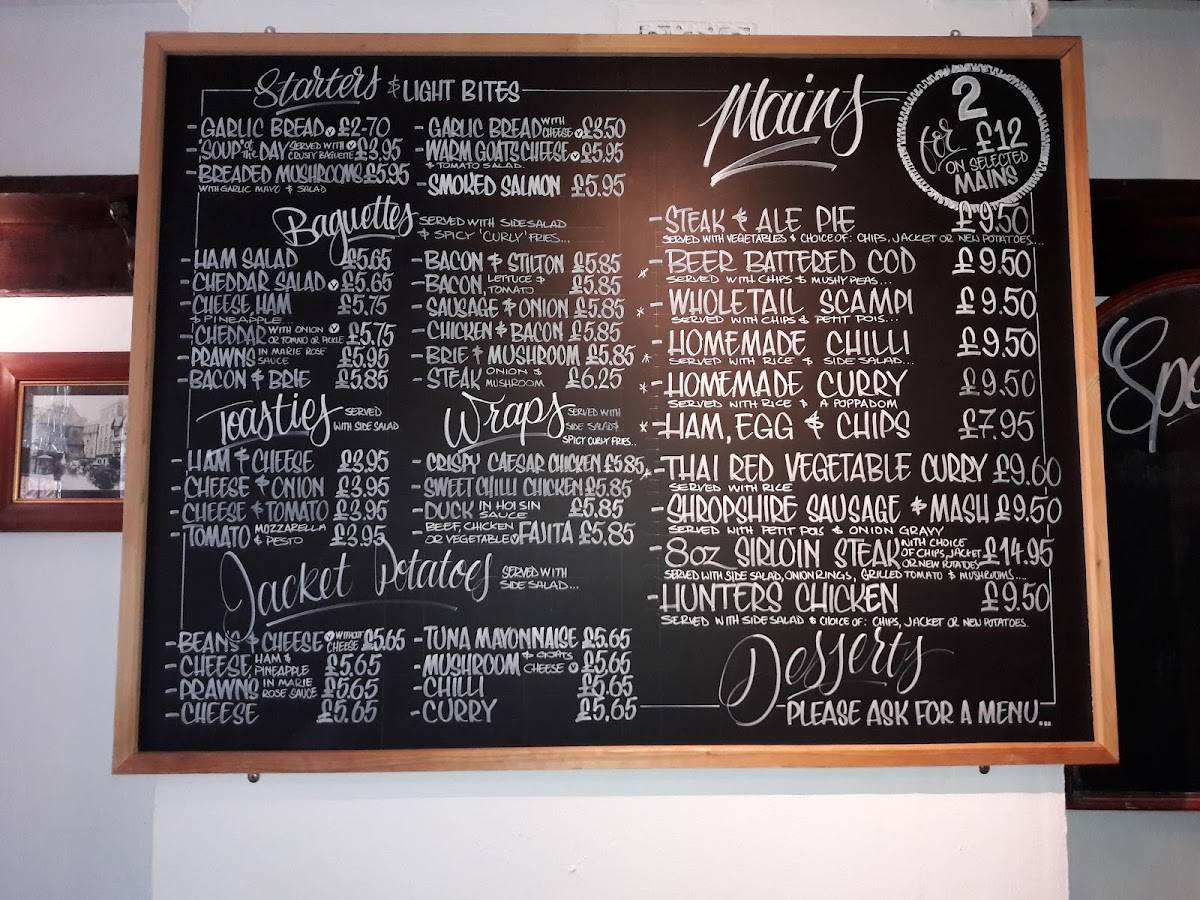 Starters & LIGHT BITES
- GARLIC BREAD V £2-70
- 'SOUP' of the DAY SERVED WITH V CRUSTY BAGUETTE £3.95
- BREADED MUSHROOMS £5.95
WITH GARLIC MAYO & SALAD
- GARLIC BREAD WITH CHEESE V £3.50
- WARM GOATS CHEESE V £5.95
& TOMATO SALAD
- SMOKED SALMON £5.95
Baguettes SERVED WITH SIDE SALAD
& SPICY 'CURLY' FRIES...
- HAM SALAD £5.65
- CHEDDAR SALAD V £5.65
- CHEESE, HAM £5.75
& PINEAPPLE
- CHEDDAR WITH ONION V OR TOMATO OR PICKLE £5.75
- PRAWNS IN MARIE ROSE SAUCE £5.95
- BACON & BRIE £5.85
- BACON & STILTON £5.85
- BACON, LETTUCE & TOMATO £5.85
- SAUSAGE & ONION £5.85
- CHICKEN & BACON £5.85
- BRIE & MUSHROOM £5.85
- STEAK ONION & MUSHROOM £6.25
Toasties SERVED
WITH SIDE SALAD
- HAM & CHEESE £3.95
- CHEESE & ONION £3.95
- CHEESE & TOMATO £3.95
- TOMATO MOZZARELLA & PESTO £3.95
Wraps SERVED WITH
SIDE SALAD &
SPICY CURLY FRIES..
- CRISPY CAESAR CHICKEN £5.85
- SWEET CHILLI CHICKEN £5.85
- DUCK IN HOI SIN SAUCE £5.85
- BEEF, CHICKEN OR VEGETABLE V FAJITA £5.85
Jacket Potatoes SERVED WITH
SIDE SALAD...
- BEANS & CHEESE V WITHOUT CHEESE £5.65
- CHEESE, HAM & PINEAPPLE £5.65
- PRAWNS IN MARIE ROSE SAUCE £5.65
- CHEESE £5.65
- TUNA MAYONNAISE £5.65
- MUSHROOM & GOATS CHEESE V £5.65
- CHILLI £5.65
- CURRY £5.65
Mains
2
for £12
ON SELECTED
MAINS
- STEAK & ALE PIE £9.50
SERVED WITH VEGETABLES & CHOICE OF: CHIPS, JACKET OR NEW POTATOES...
* - BEER BATTERED COD £9.50
SERVED WITH CHIPS & MUSHY PEAS...
* - WHOLETAIL SCAMPI £9.50
SERVED WITH CHIPS & PETIT POIS...
* - HOMEMADE CHILLI £9.50
SERVED WITH RICE & SIDE SALAD...
* - HOMEMADE CURRY £9.50
SERVED WITH RICE & A POPPADOM
* - HAM, EGG & CHIPS £7.95
* - THAI RED VEGETABLE CURRY £9.60
SERVED WITH RICE
- SHROPSHIRE SAUSAGE & MASH £9.50
SERVED WITH PETIT POIS & ONION GRAVY
- 8oz SIRLOIN STEAK WITH CHOICE OF CHIPS, JACKET OR NEW POTATOES £14.95
SERVED WITH SIDE SALAD, ONION RINGS, GRILLED TOMATO & MUSHROOMS...
- HUNTERS CHICKEN £9.50
SERVED WITH SIDE SALAD & CHOICE OF: CHIPS, JACKET OR NEW POTATOES.
Desserts
- PLEASE ASK FOR A MENU...
Spe